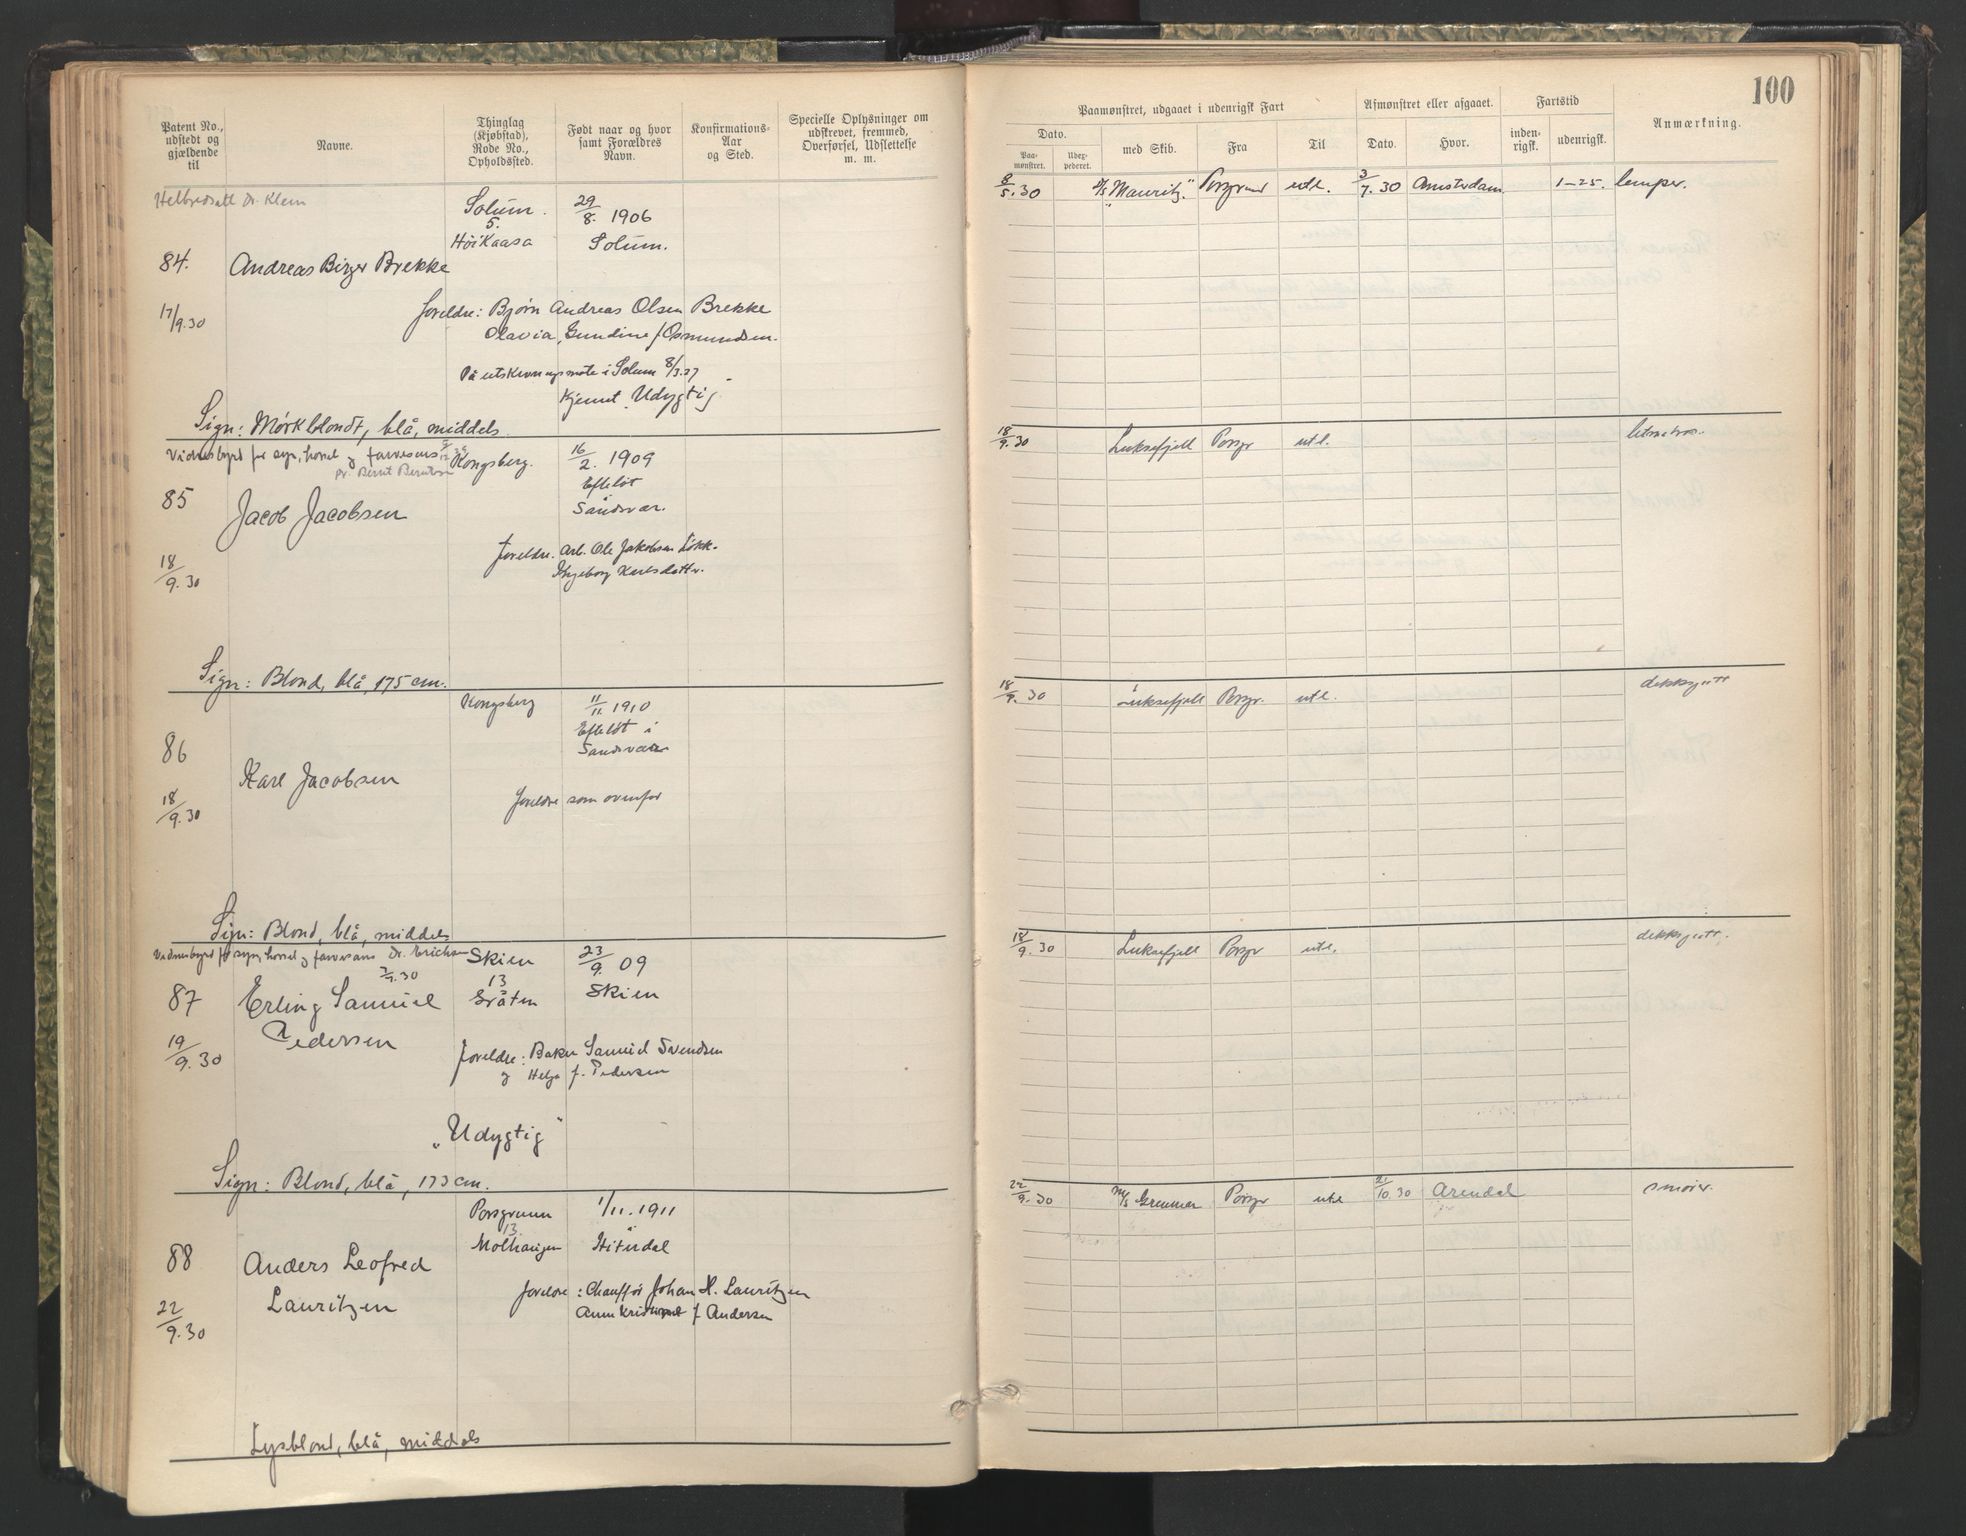 100
Patent No., udstedt og gjældende til
Navne.
Thinglag (Kjøbstad), Rode No., Opholdssted.
Født naar og hvor samt Forældres Navn.
Konfirmations-Aar og Sted.
Specielle Oplysninger om udskrevet, fremmed, Overførsel, Udslettelse m. m.
Paamønstret, udgaaet i udenrigsk Fart
Afmønstret eller afgaaet.
Fartstid
Anmærkning.
Dato.
Paa-mønstret.
Uder-pederet.
med Skib.
Fra
Til
Dato.
Hvor.
inden-rigsk.
udenrigsk.
Helbredsatt Dr. Klem
Solum.
5.
Höikaasa
29/8. 1906
Solum.
84.
Andreas Birger Brekke
17/9.30
foreldre: Bjørn Andreas Olsen Brekke
Olavia Gundine f Osmundsen.
På utskrivningsmøte i Solum 8/3.27
kjennt „Udygtig"
Sign: Mørkblondt, blå, middels.
8/5.30 S/S „Mauritz" Porsgrund utl. 3/7.30 Amsterdam 1-25. lemper.
Vidnesbyrd for syn, hørsel og farvesans
pr. Bernt Berntsen
Kongsberg.
16/2. 1909
Efteløt
Sandsvær.
85
Jacob Jacobsen
18/9.30
foreldre. Arb. Ole Jakobsen Løkk.
Ingeborg Karlsdatter.
Sign: Blond, blå, 175 cm.
18/9.30 Luksefjell Porsgr utl. letmatros.
Kongsberg
11/11. 1910
Efteløt i
Sandsvær
86
Karl Jacobsen
18/9.30
foreldre som ovenfor
Sign: Blond, blå, middels
18/9.30 Luksefjell Porsgr. utl. dekksgutt
Vidnesbyrd for syn, hørsel og farvesans Dr. Erichsen
2/9.30
Skien
13
Gråten
23/9. 09
Skien
87
Erling Samuel
Pedersen
19/9.30
foreldre: Baker Samuel Svendsen
og Helga f. Pedersen
„Udygtig"
Sign: Blond, blå, 173 cm.
18/9.30 Luksefjell Porsgr utl. dekksgutt.
Porsgrunn
13
Molhaugen
1/11. 1911
Hitterdal
88
Anders Leofred
Lauritzen
22/9.30
foreldre: Chauffør Johan H. Lauritzen
f Andersen
Lysblond, blå, middels
22/9.30 M/S Grenmar Porsgr utl 21/10.30 Arendal smører.